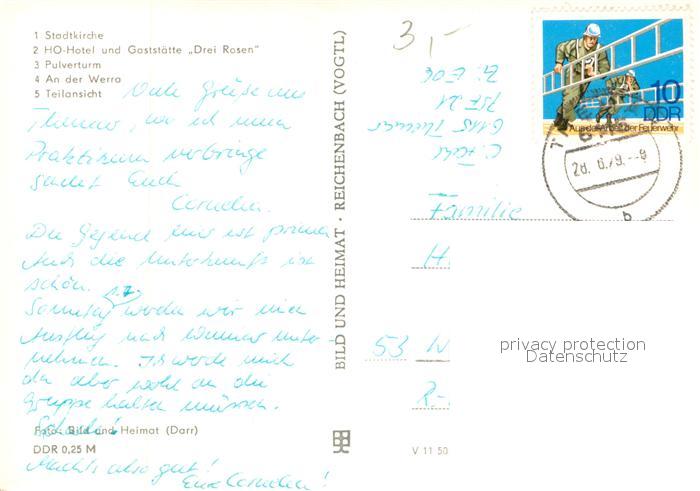 1 Stadtkirche
2 HO-Hotel und Gaststätte „Drei Rosen"
3 Pulverturm
4 An der Werra
5 Teilansicht
Viele Grüße aus
Themar, wo ich mein
Praktikum verbringe
sendet Euch
Cornelia.
Die Gegend hier ist prima
Auch die Unterkunft ist
schön.
1.7.
Sonntag werden wir einen
Ausflug nach Weimar unter-
nehmen. Ich werde mich
da aber wohl an die
Gruppe halten müssen.
Schade!
Foto: Bild und Heimat (Darr)
DDR 0,25 M
Machts also gut!
Eure Cornelia!
BILD UND HEIMAT · REICHENBACH (VOGTL)
V 11 50
3,-
6115 Themar
PSF 21
Familie
H
53 W
R.-
10
DDR
Aus der Arbeit der Feuerwehr
28.6.79.-8
b
privacy protection
Datenschutz